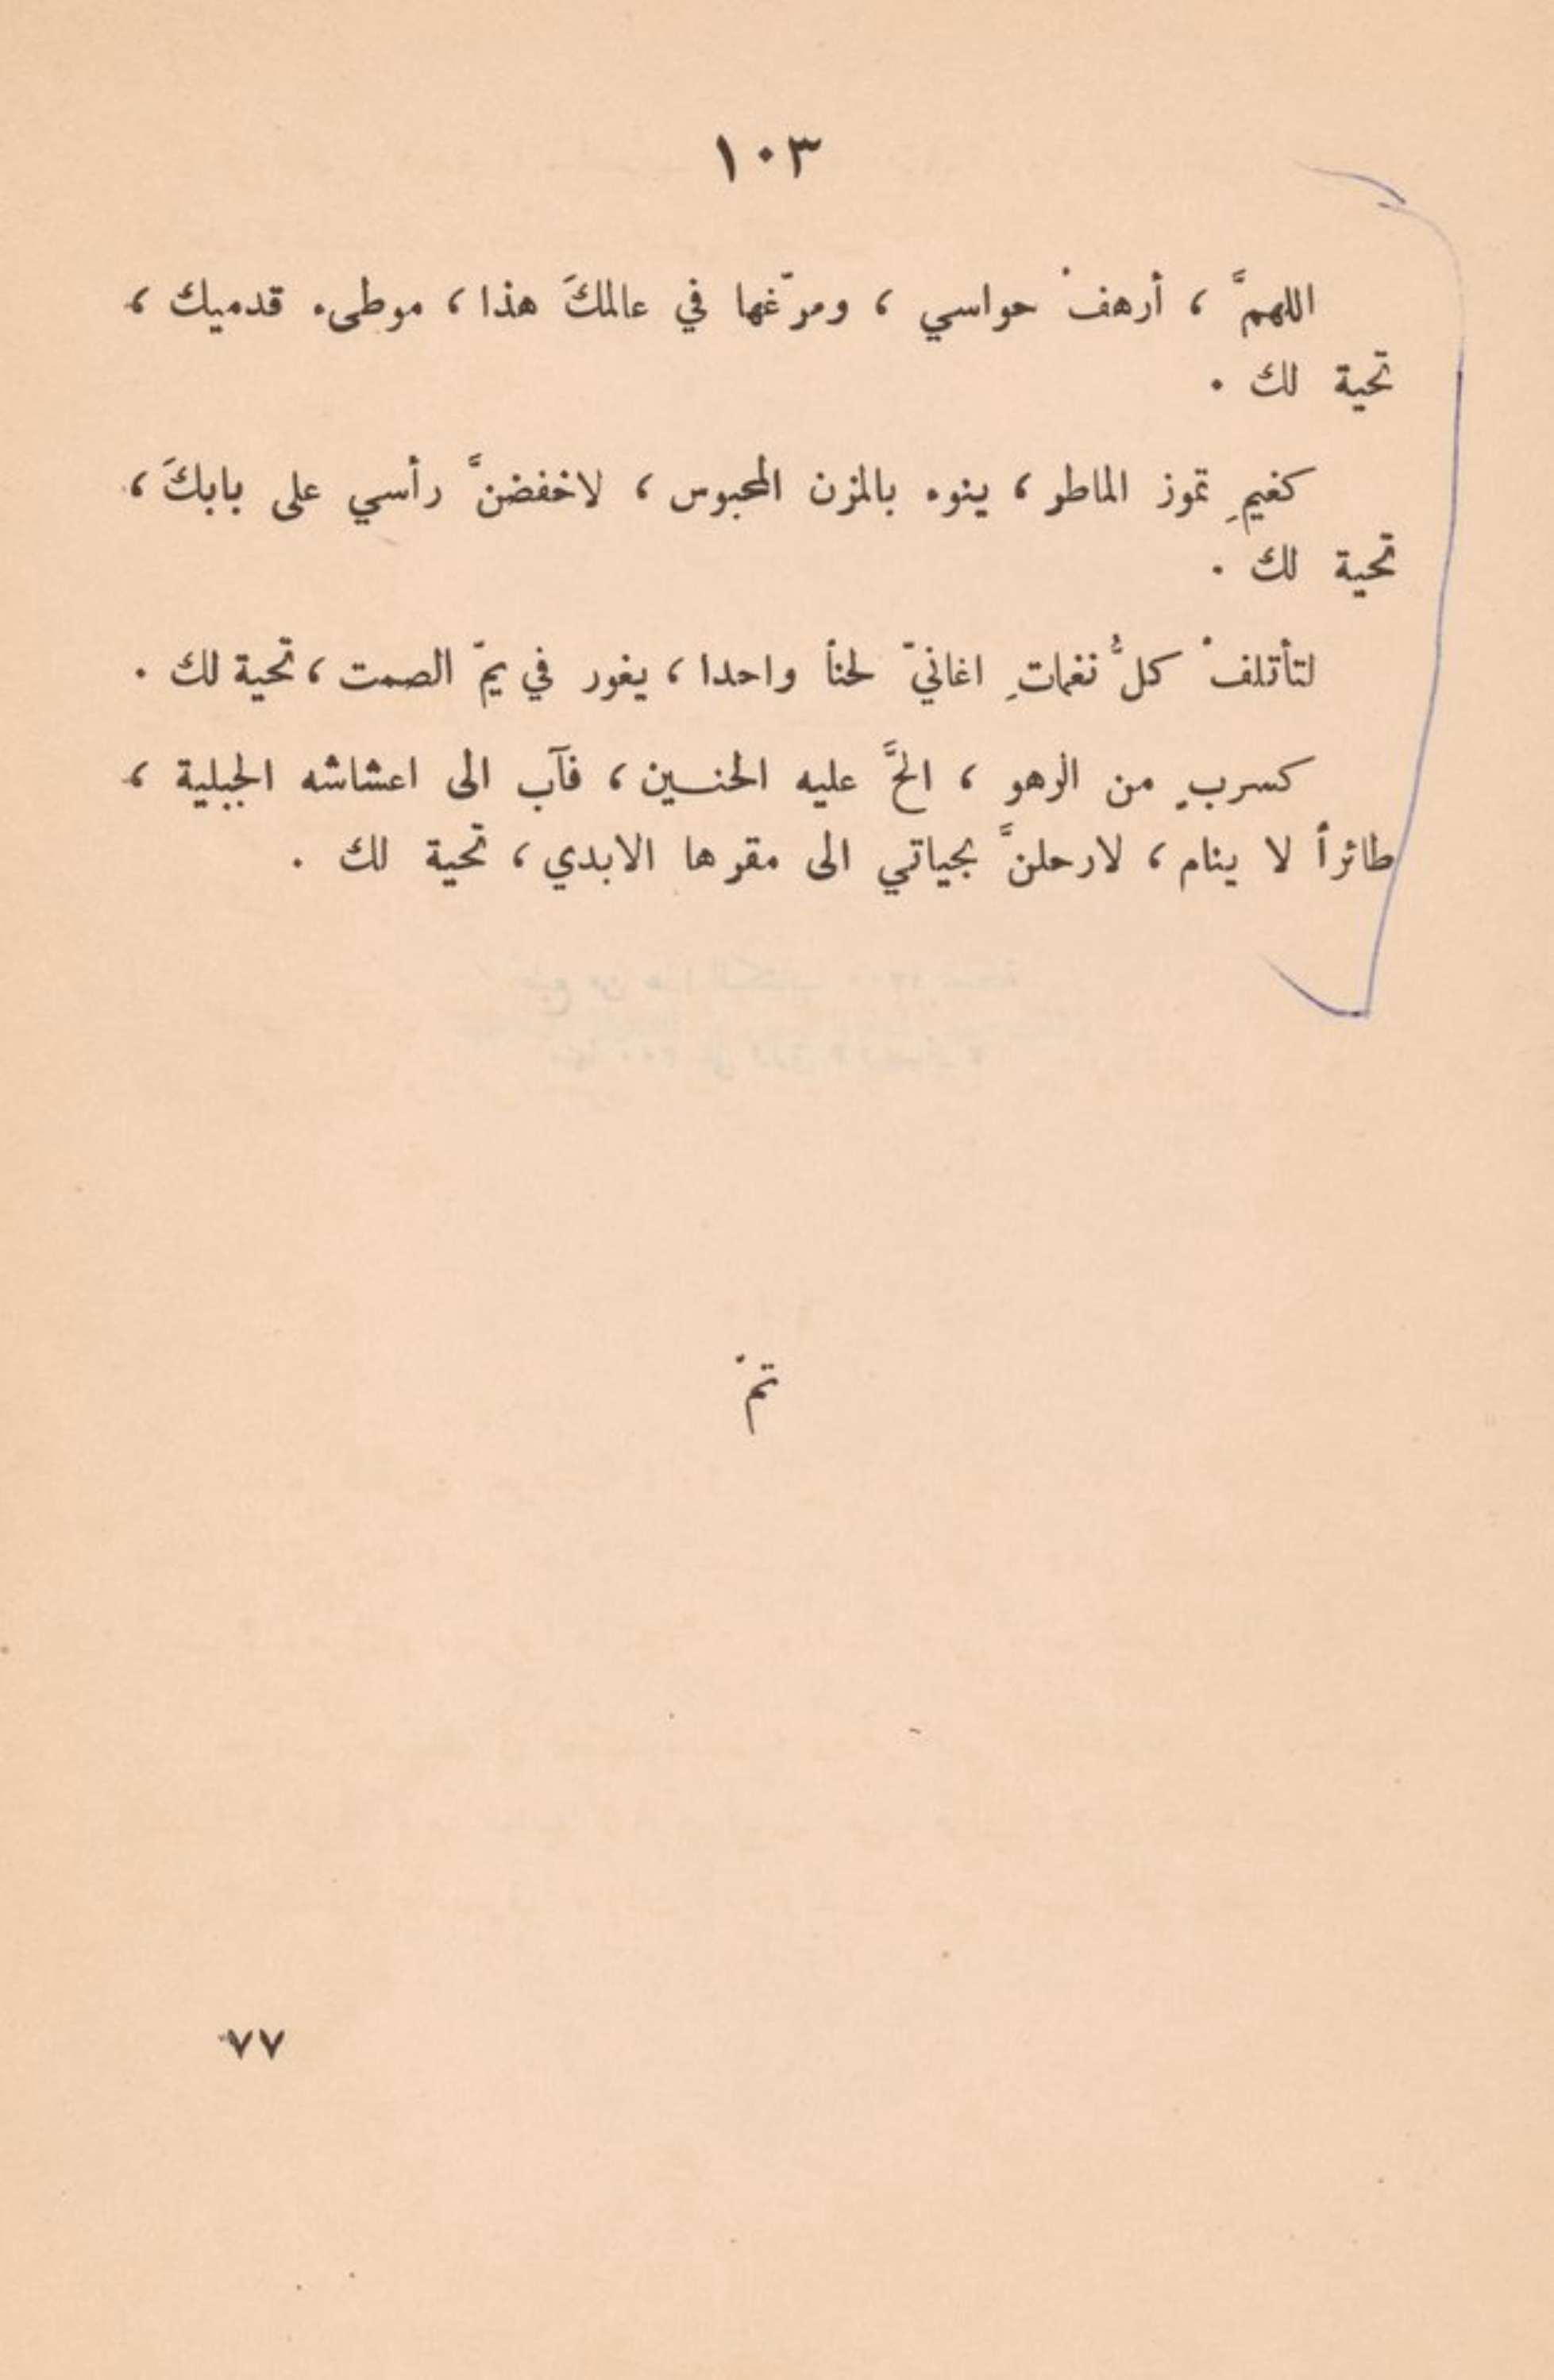 ١٠٣
اللهمَّ ، أرهفْ حواسي ، ومرّغها في عالمكَ هذا ، موطىء قدميك ،
تحية لك .
كغيمِ تموز الماطر ، ينوء بالمزن المحبوس ، لاخفضنَّ رأسي على بابكَ ،
تحية لك .
لتأتلفْ كلُّ نغماتِ اغانيّ لحنأ واحدا ، يغور في يمّ الصمت ، تحية لك .
كسربٍ من الرهو ، الحَّ عليه الحنسين ، فآب الى اعشاشه الجبلية ،
طائراً لا ينام ، لارحلنَّ بحياتي الى مقرها الابدي ، تحية لك .
تمّ
٧٧